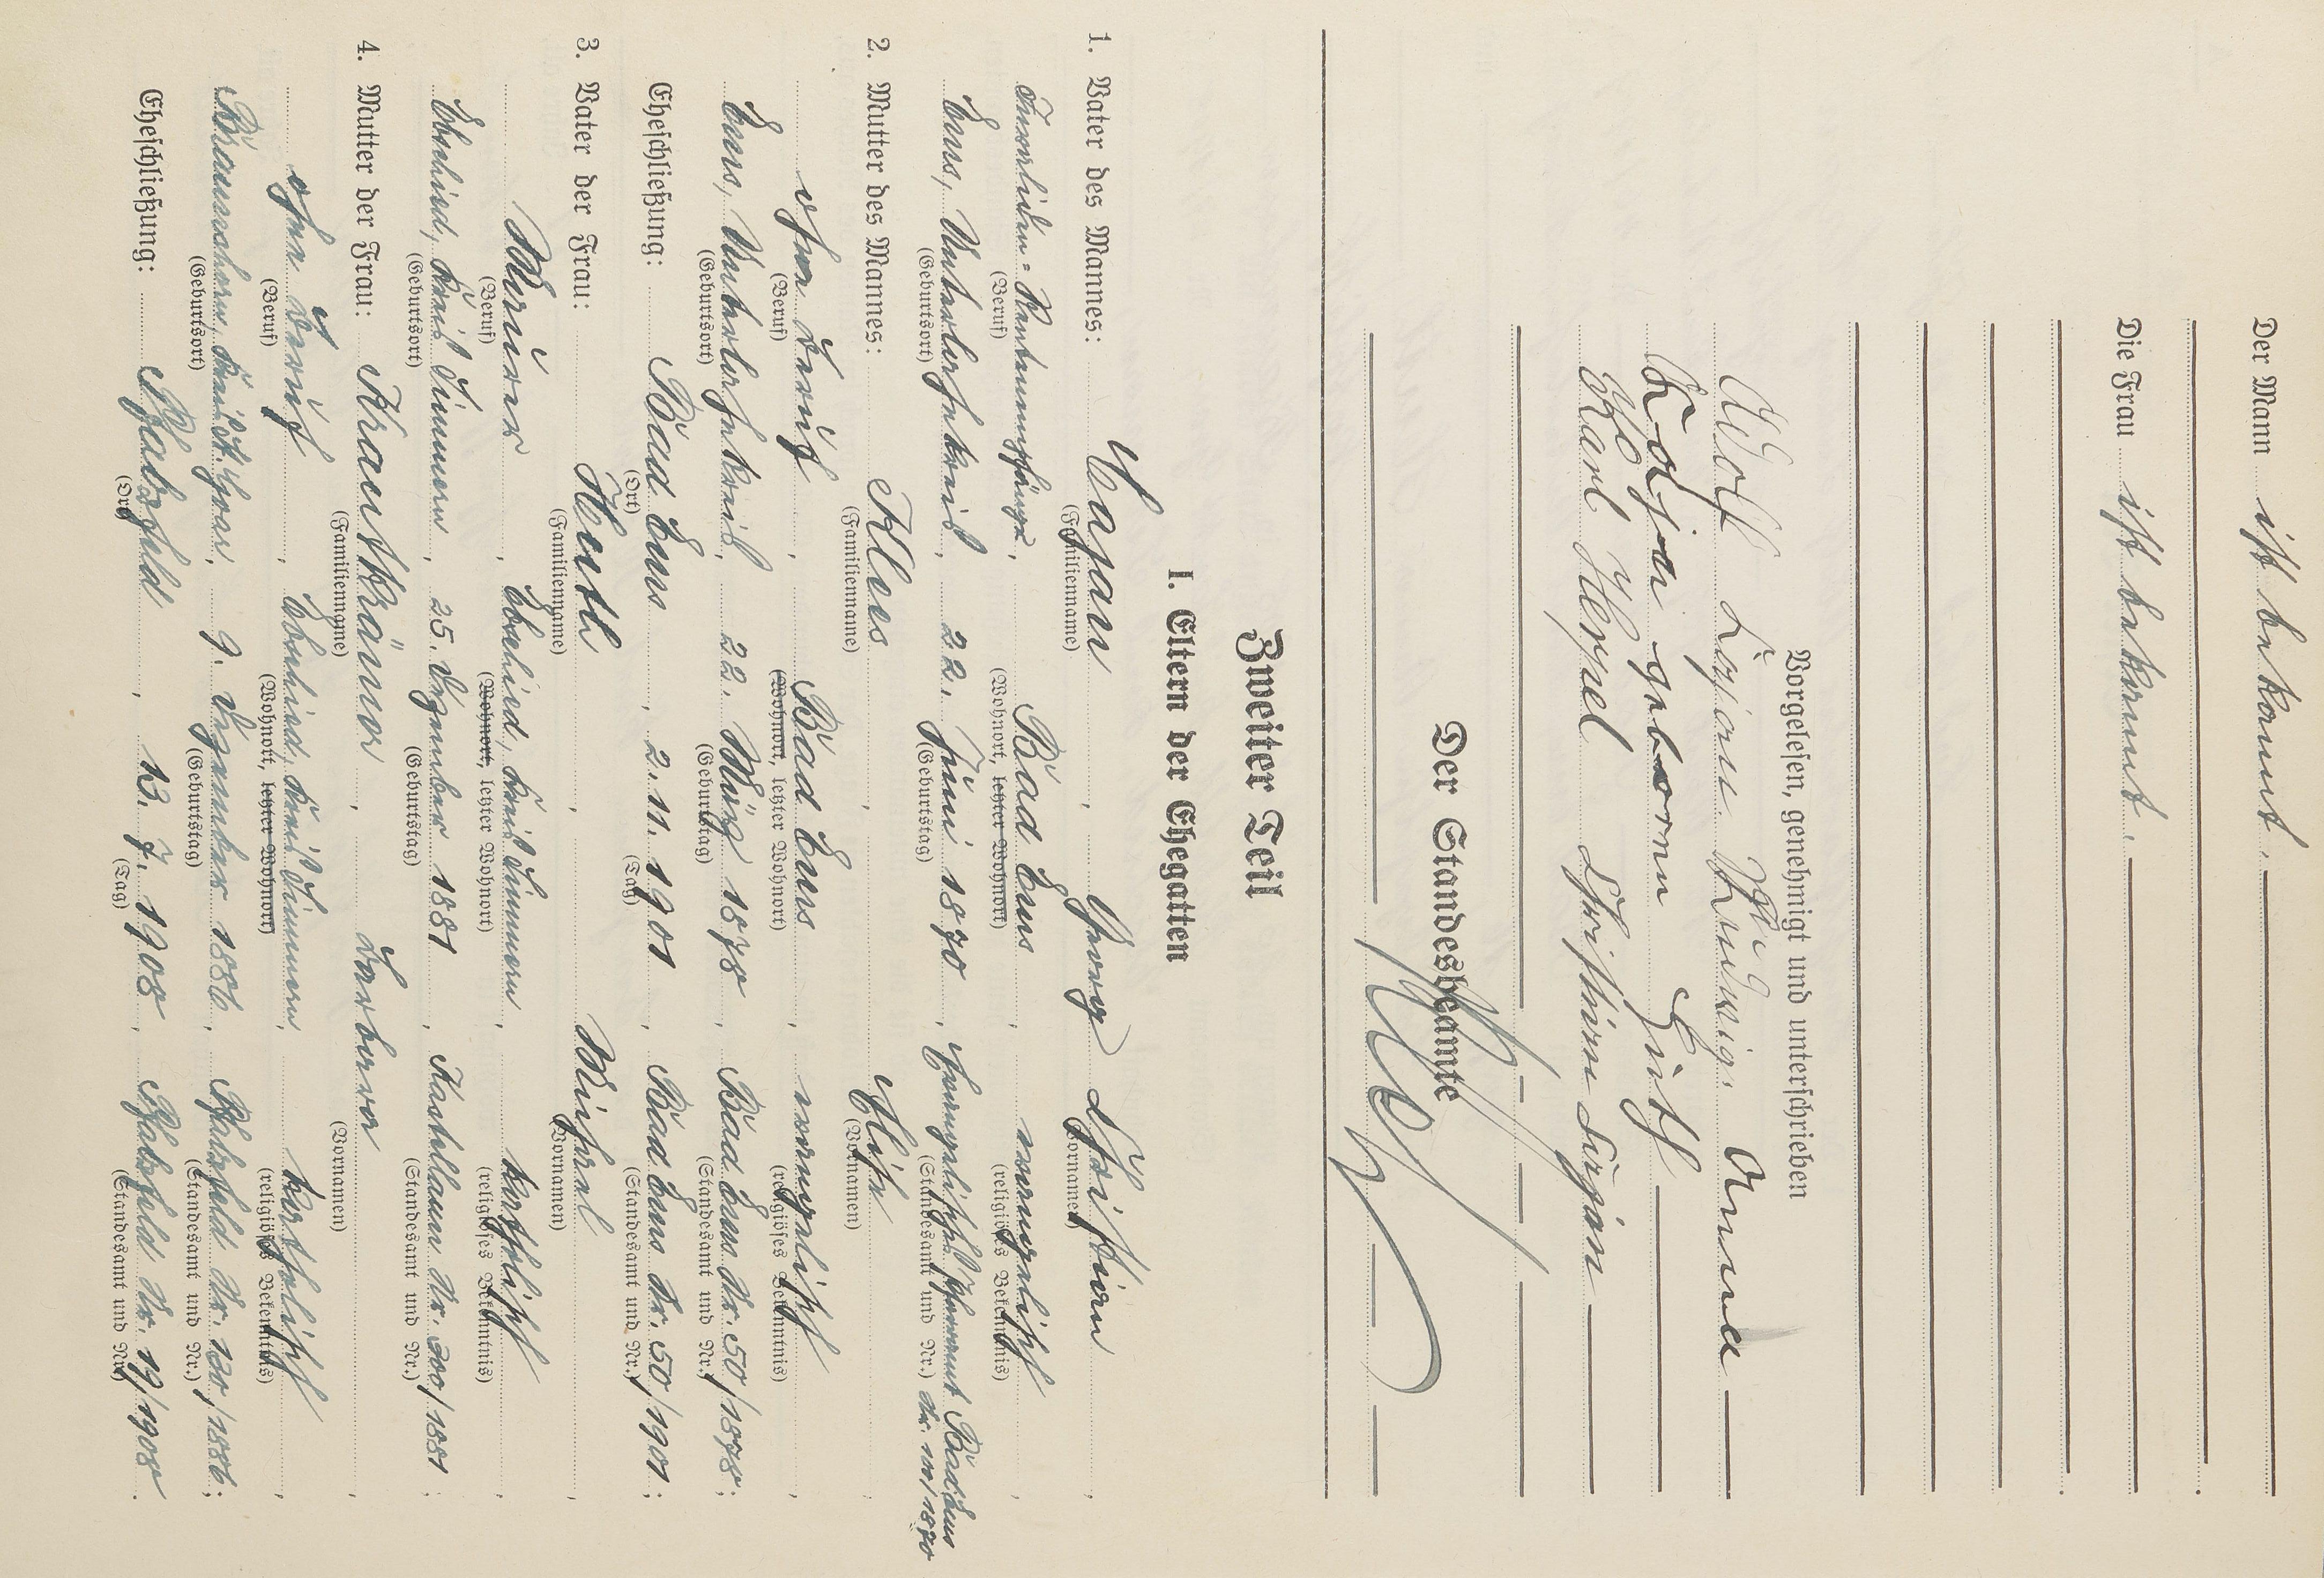 Der Mann ist bekannt.
Die Frau ist bekannt.
Vorgelesen, genehmigt und unterschrieben
Adolf Anna
geborene Huth
Karl Heppel Christian
Der Standesbeamte
Zweiter Teil
I. Eltern der Ehegatten
1. Vater des Mannes: Capan, Georg Christian
(Familienname) (Vornamen)
Invaliden-Rentenempfänger, Bad Ems, evangelisch,
(Beruf) (Wohnort, letzter Wohnort) (religiöses Bekenntnis)
Ems, Unterlahnkreis, 22. Juni 1870, Evangelisches Pfarramt Bad Ems Nr. 100/1870
(Geburtsort) (Geburtstag) (Standesamt und Nr.)
2. Mutter des Mannes: Klees, Elise,
(Familienname) (Vornamen)
ohne Beruf, Bad Ems, evangelisch,
(Beruf) (Wohnort, letzter Wohnort) (religiöses Bekenntnis)
Ems, Unterlahnkreis, 22. März 1878, Bad Ems Nr. 50/1878;
(Geburtsort) (Geburtstag) (Standesamt und Nr.)
Eheschließung: Bad Ems, 2. 11. 1901, Bad Ems Nr. 50/1901;
(Ort) (Tag) (Standesamt und Nr.)
3. Vater der Frau: Huth, Michael,
(Familienname) (Vornamen)
Maurer, Ebschied, Kreis Simmern, katholisch,
(Beruf) (Wohnort, letzter Wohnort) (religiöses Bekenntnis)
Ebschied, Kreis Simmern, 25. Dezember 1881, Kastellaun Nr. 200/1881;
(Geburtsort) (Geburtstag) (Standesamt und Nr.)
4. Mutter der Frau: Krautkrämer, Barbara,
(Familienname) (Vornamen)
ohne Beruf, Ebschied, Kreis Simmern, katholisch,
(Beruf) (Wohnort, letzter Wohnort) (religiöses Bekenntnis)
Braunshorn, Kreis St. Goar, 9. Dezember 1886, Pfalzfeld Nr. 120/1886;
(Geburtsort) (Geburtstag) (Standesamt und Nr.)
Eheschließung: Pfalzfeld, 13. 7. 1908, Pfalzfeld Nr. 19/1908.
(Ort) (Tag) (Standesamt und Nr.)